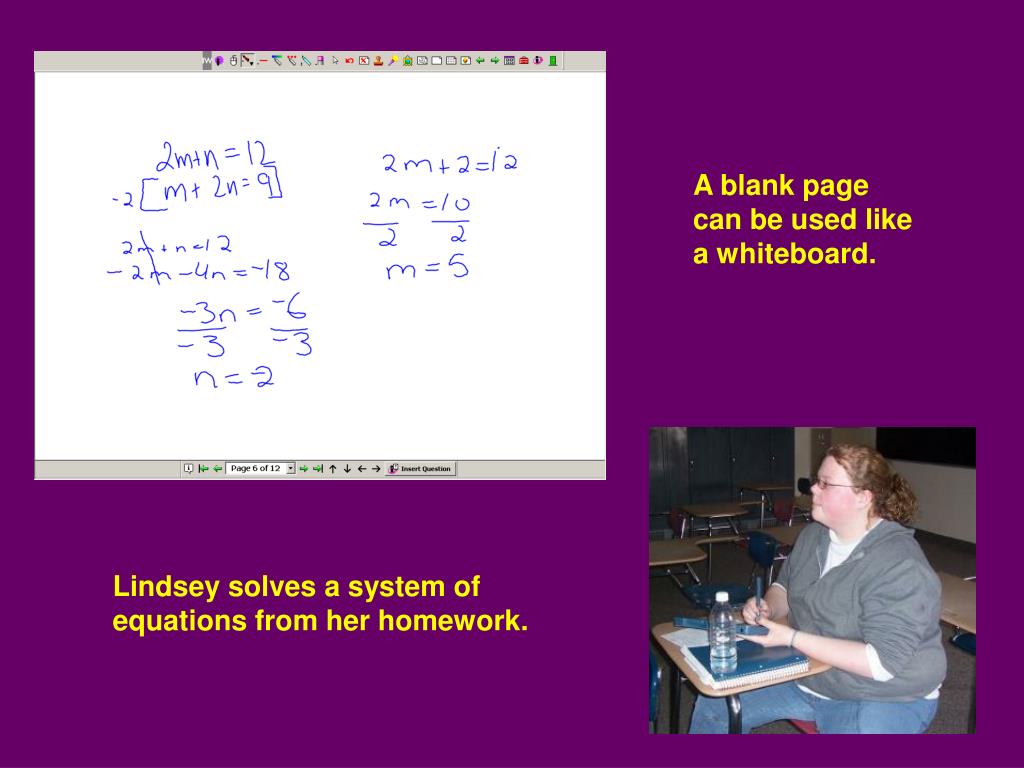 2m+n=12
-2[m+2n=9]
2m+n=12
-2m-4n=-18
-3n = -6
-3 -3
n = 2
2m+2=12
2m =10
2 2
m=5
Page 6 of 12
Insert Question
A blank page
can be used like
a whiteboard.
Lindsey solves a system of
equations from her homework.